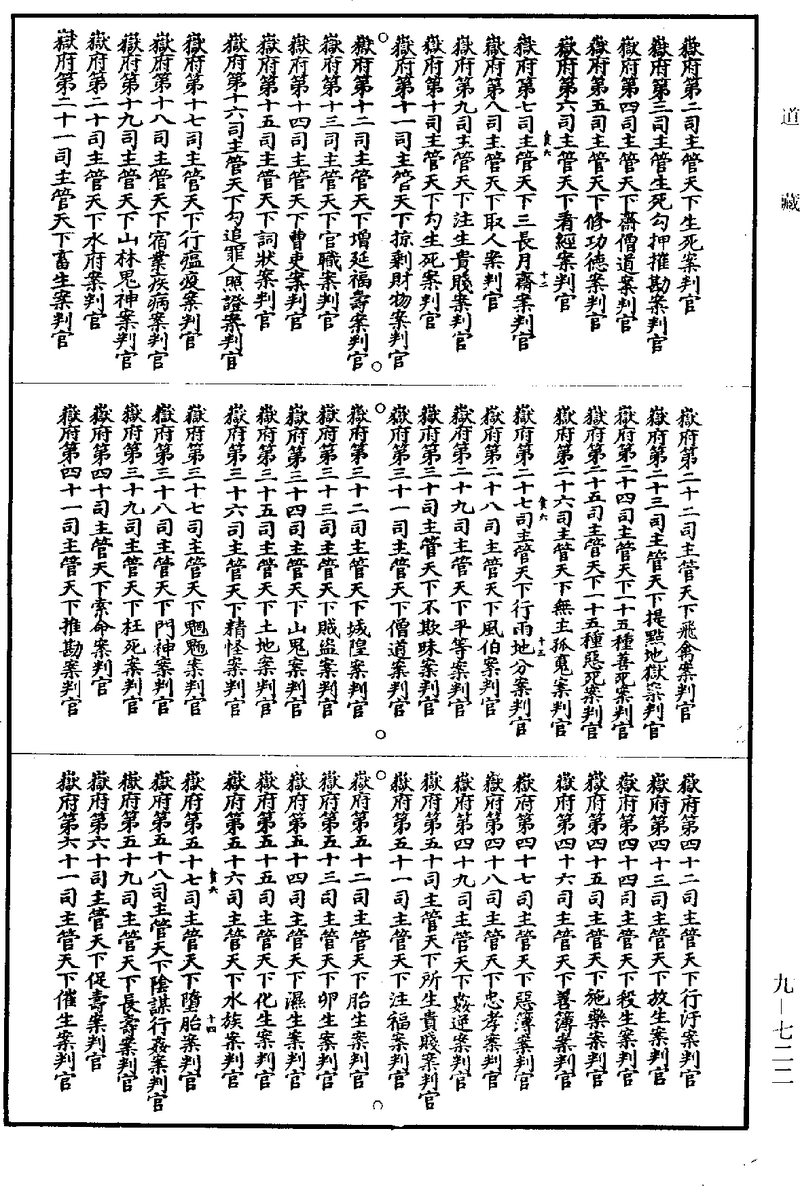 道藏
嶽府第二司主管天下生死案判官
嶽府第三司主管生死勾押推勘案判官
嶽府第四司主管天下齋僧道案判官
嶽府第五司主管天下修功德案判官
嶽府第六司主管天下看經案判官
嶽府第七司主管天下三長月齋案判官
嶽府第八司主管天下取人案判官
嶽府第九司主管天下注生貴賤案判官
嶽府第十司主管天下勾生死案判官
嶽府第十一司主管天下掠剩財物案判官
嶽府第十二司主管天下增延福壽案判官
嶽府第十三司主管天下官職案判官
嶽府第十四司主管天下曹吏案判官
嶽府第十五司主管天下詞狀案判官
嶽府第十六司主管天下勾追罪人照證案判官
嶽府第十七司主管天下行瘟疫案判官
嶽府第十八司主管天下宿業疾病案判官
嶽府第十九司主管天下山林鬼神案判官
嶽府第二十司主管天下水府案判官
嶽府第二十一司主管天下畜生案判官
嶽府第二十二司主管天下飛禽案判官
嶽府第二十三司主管天下提點地獄案判官
嶽府第二十四司主管天下一十五種善死案判官
嶽府第二十五司主管天下一十五種惡死案判官
嶽府第二十六司主管天下無主孤魂案判官
嶽府第二十七司主管天下行雨地分案判官
嶽府第二十八司主管天下風伯案判官
嶽府第二十九司主管天下平等案判官
嶽府第三十司主管天下不欺昧案判官
嶽府第三十一司主管天下僧道案判官
嶽府第三十二司主管天下城隍案判官
嶽府第三十三司主管天下賊盜案判官
嶽府第三十四司主管天下山鬼案判官
嶽府第三十五司主管天下土地案判官
嶽府第三十六司主管天下精怪案判官
嶽府第三十七司主管天下魍魎案判官
嶽府第三十八司主管天下門神案判官
嶽府第三十九司主管天下枉死案判官
嶽府第四十司主管天下索命案判官
嶽府第四十一司主管天下推勘案判官
嶽府第四十二司主管天下行汙案判官
嶽府第四十三司主管天下放生案判官
嶽府第四十四司主管天下殺生案判官
嶽府第四十五司主管天下施藥案判官
嶽府第四十六司主管天下善簿案判官
嶽府第四十七司主管天下惡簿案判官
嶽府第四十八司主管天下忠孝案判官
嶽府第四十九司主管天下姦逆案判官
嶽府第五十司主管天下所生貴賤案判官
嶽府第五十一司主管天下注福案判官
嶽府第五十二司主管天下胎生案判官
嶽府第五十三司主管天下卵生案判官
嶽府第五十四司主管天下濕生案判官
嶽府第五十五司主管天下化生案判官
嶽府第五十六司主管天下水族案判官
嶽府第五十七司主管天下墮胎案判官
嶽府第五十八司主管天下陰謀行姦案判官
嶽府第五十九司主管天下長壽案判官
嶽府第六十司主管天下促壽案判官
嶽府第六十一司主管天下催生案判官
十二
十三
十四
九—七二二